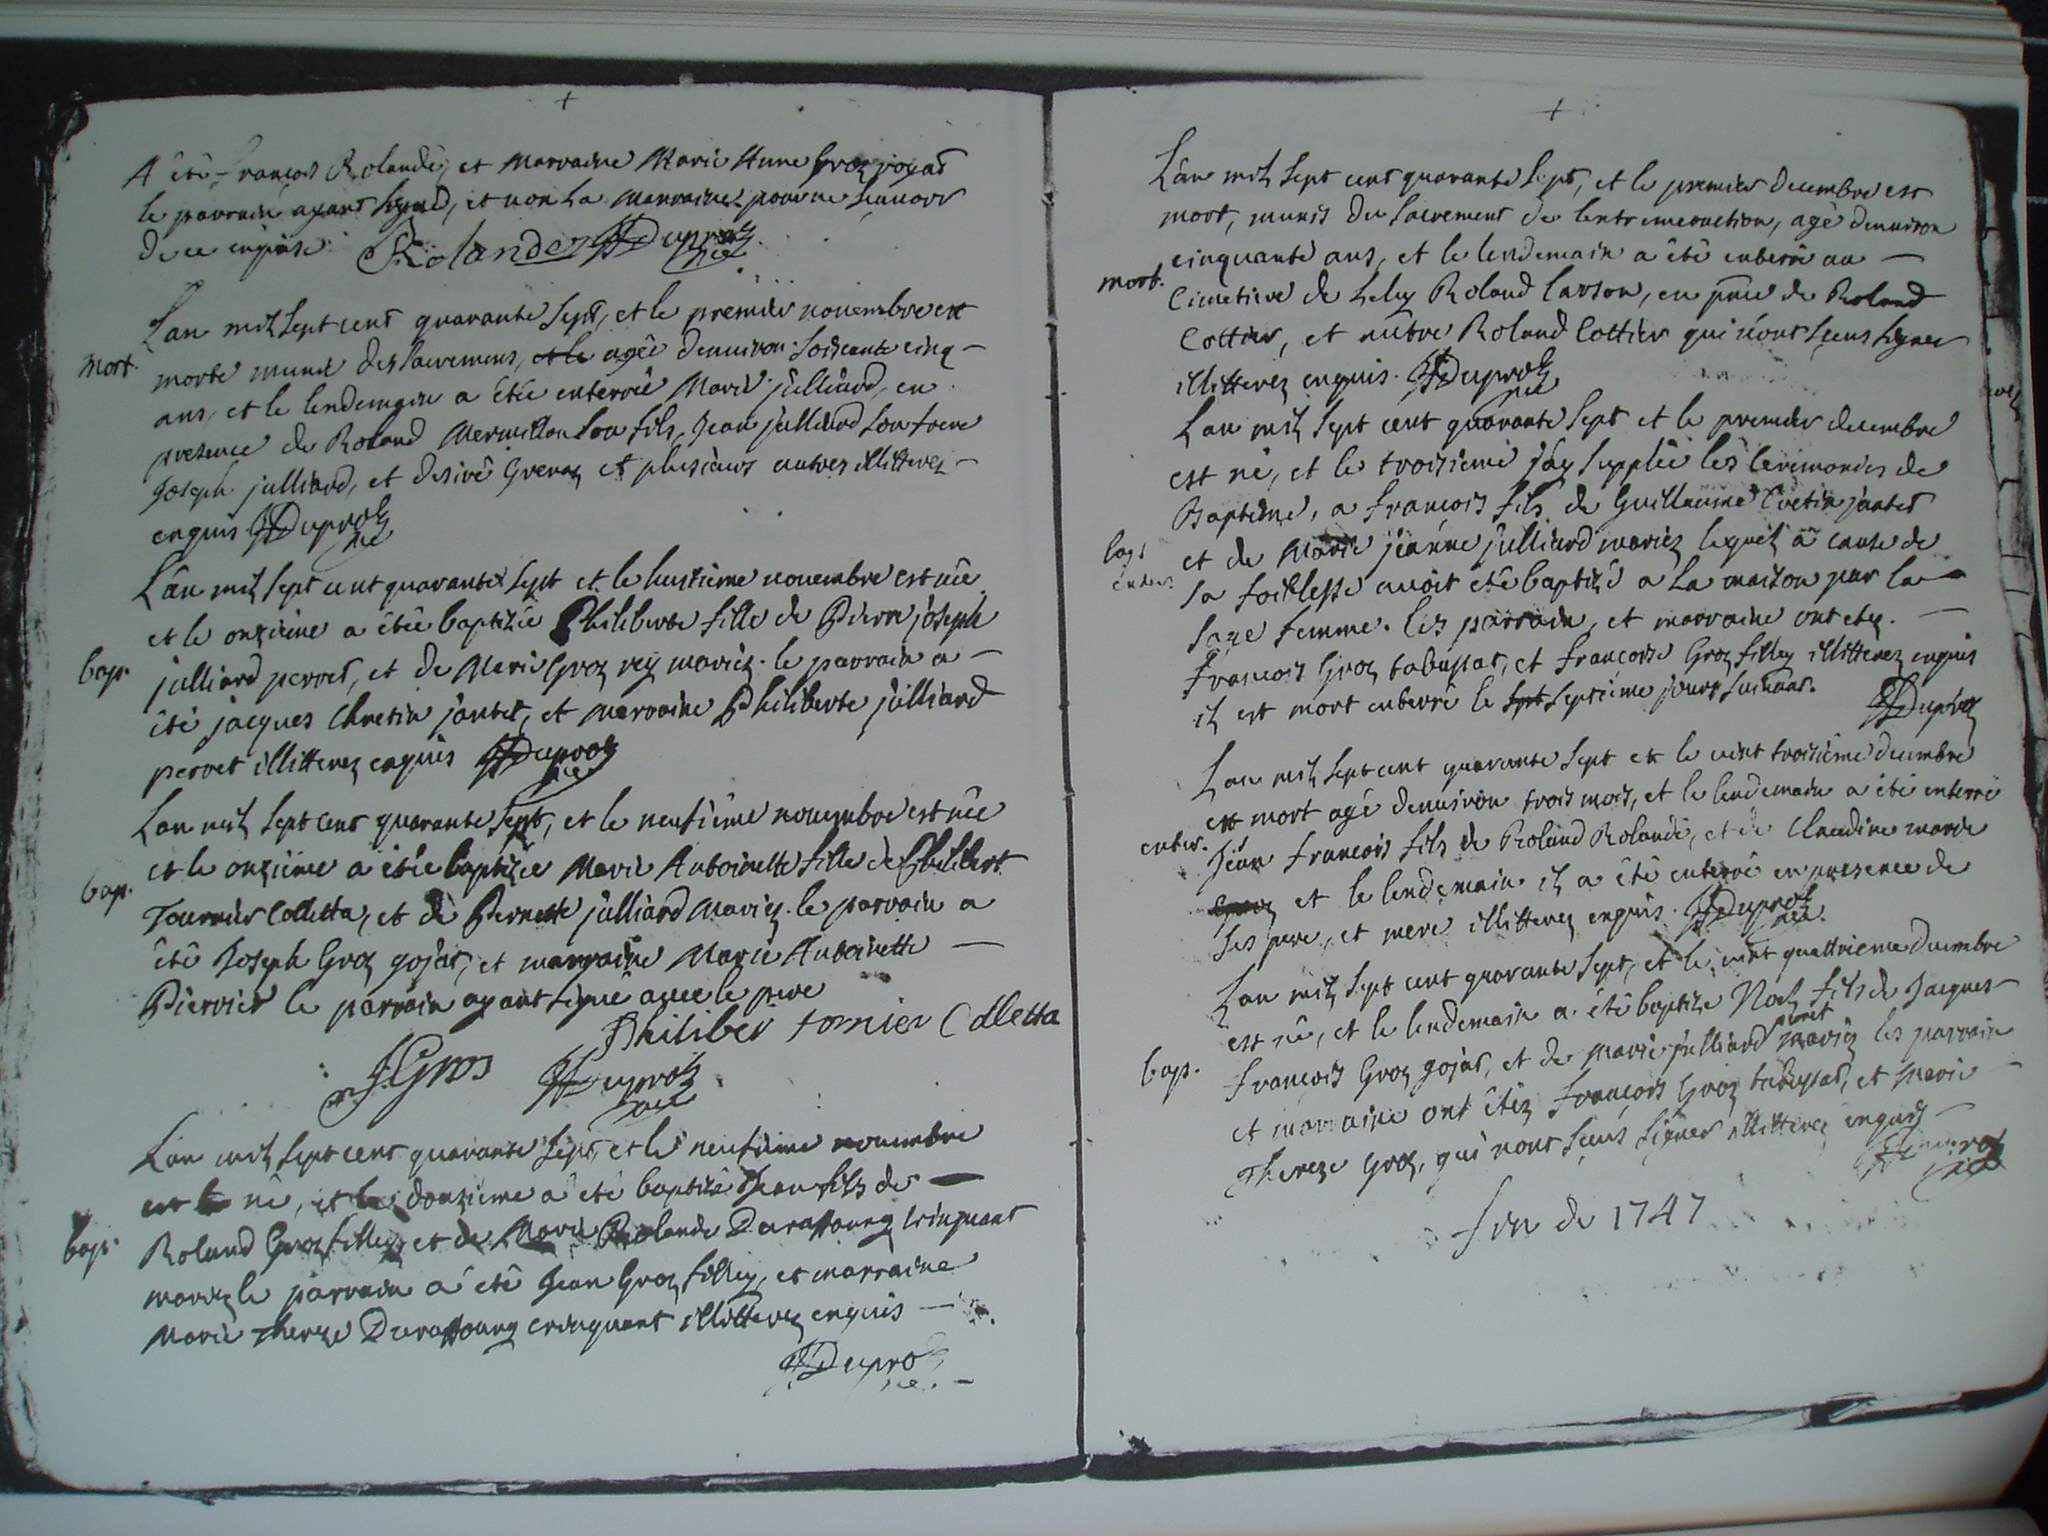 +
A êté francois Rolandé, et Marraine Marie Anne Groz gojat
le parrain ayant signé, et non la Marraine pour ne sçavoir
de ce enquise. Rolandez Duproz
L'an mil sept cent quarante sept, et le premier novembre est
mort. morte munie des sacremens, et le agée d'environ soixante cinq
ans, et le lendemain a étée enterrée Marie julliard, en
presence de Roland Mermillon son fils, Jean julliard son frere
Joseph julliard, et desiré Grenoz et plusieurs autres illitterez
enquis Duproz
L'an mil sept cent quarante sept et le huitième novembre est née
et le onzième a étée baptizée Philiberte fille de Pierre joseph
bap. julliard pervet, et de Marie Groz rey mariez. le parrain a
été jacques Chretin jantet, et marraine Philiberte julliard
pervet illitterez enquis Duproz
L'an mil sept cent quarante sept, et le neufième novembre est née
et le onzième a étée baptizée Marie Antoinette fille de Philibert
bap. Tournier Colletta, et de Pernette julliard Mariez. le parrain a
été Joseph Groz gojat, et marraine Marie Antoinette
le parrain ayant signé avec le pere
Philiber tornier Colletta
J Gros Duproz
L'an mil sept cent quarante sept, et le neufième novembre
est né, et le douzieme a été baptizé Jean fils de
bap. Roland Groz filley, et de Marie Rolande Duraffourg crinquant
mariez le parrain a été Jean Groz filley, et marraine
Marie Thereze Duraffourg crinquant illitterez enquis
Duproz
+
L'an mil sept cent quarante sept, et le premier decembre est
mort, munis du sacrement de lextremeonction, agé d'environ
cinquante ans, et le lendemain a été enterré au
mort. Cimetiere de Roland Carson, en pnce de Roland
Cottier, et autre Roland Cottier qui n'ont sçeus signer
illitterez enquis. Duproz
L'an mil sept cent quarante sept et le premier decembre
est né, et le troisieme j'ay supplée les ceremonies de
Baptême, a francois fils de Guillaume Cretin jantet
bap. et de Marie jeanne julliard mariez lequel a cause de
enter. sa foiblesse avoit eté baptizé a la maison par la
sage femme. les parrain, et marraine ont etez
francois Groz tabussat, et francoise Groz filley illitterez enquis
il est mort enterré le sept septième jour suivant. Duproz
L'an mil sept cent quarante sept et le vint troisième decembre
est mort agé d'environ trois mois, et le lendemain a été enterré
enter. Jean francois fils de Roland Rolandé, et de Claudine marie
et le lendemain il a été enterré en presence de
ses pere, et mere illitterez enquis. Duproz
L'an mil sept cent quarante sept, et le vint quattrieme decembre
est né, et le lendemain a été baptizé Noel fils de Jacques
bap. francois Groz gojat, et de Marie julliard pervet mariez les parrain
et marraine ont étéz francois Groz tabussat, et Marie
Thereze Groz, qui n'ont sçeus signer illitterez enquis
Duproz
fin de 1747